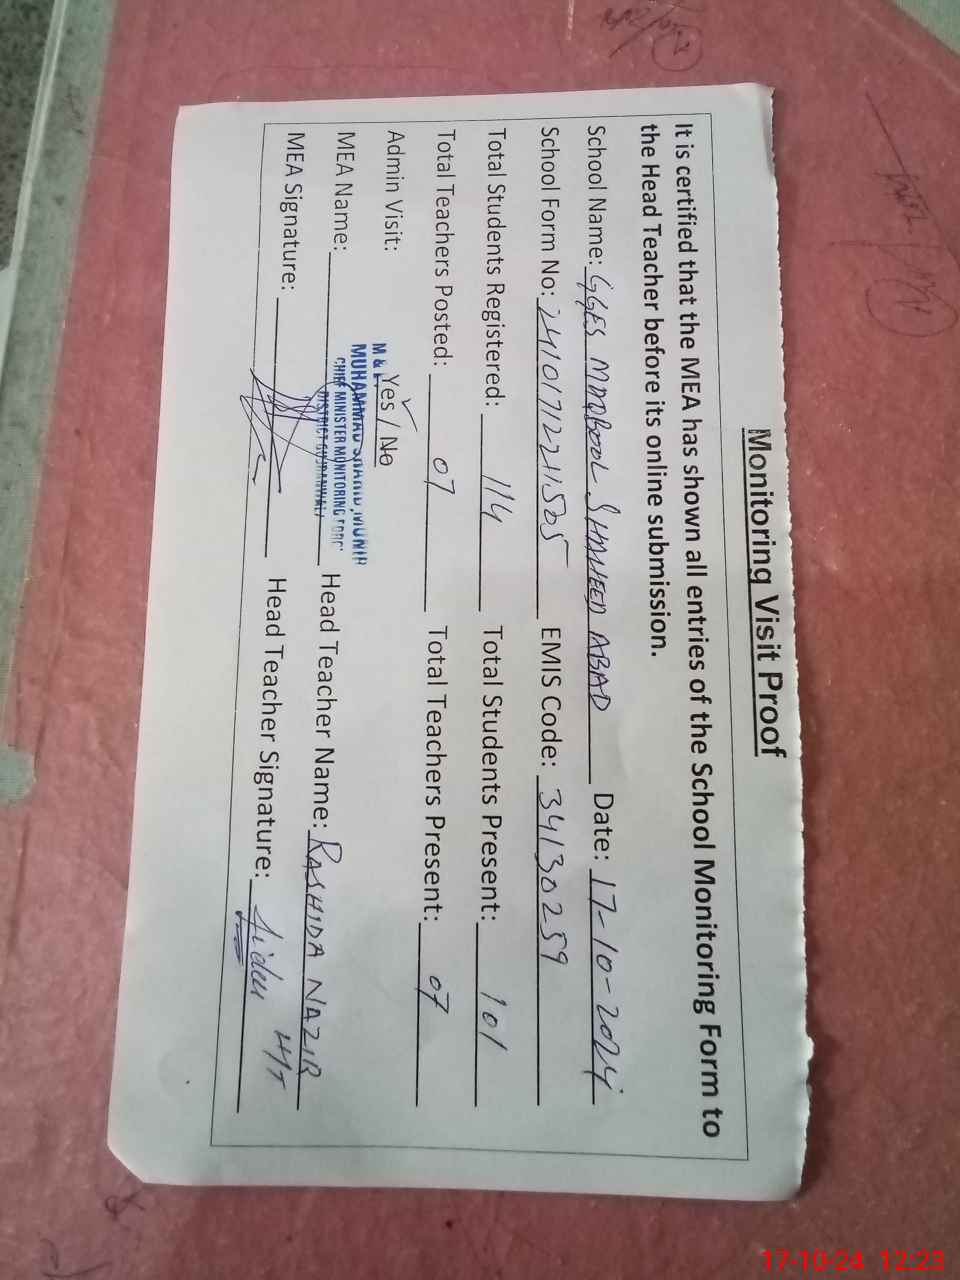 Monitoring Visit Proof
It is certified that the MEA has shown all entries of the School Monitoring Form to
the Head Teacher before its online submission.
School Name: GGES MAQBOOL SHAHEED ABAD Date: 17-10-2024
School Form No: 24101712211505 EMIS Code: 34130259
Total Students Registered: 114 Total Students Present: 101
Total Teachers Posted: 07 Total Teachers Present: 07
Admin Visit: Yes / No
M &
MEA Name: MUHAMMAD SHAHID MUNIR Head Teacher Name: RASHIDA NAZIR
CHIEF MINISTER MONITORING FORC
DISTRICT GUJRANWALA
MEA Signature: Head Teacher Signature: H/T
17-10-24 12:23